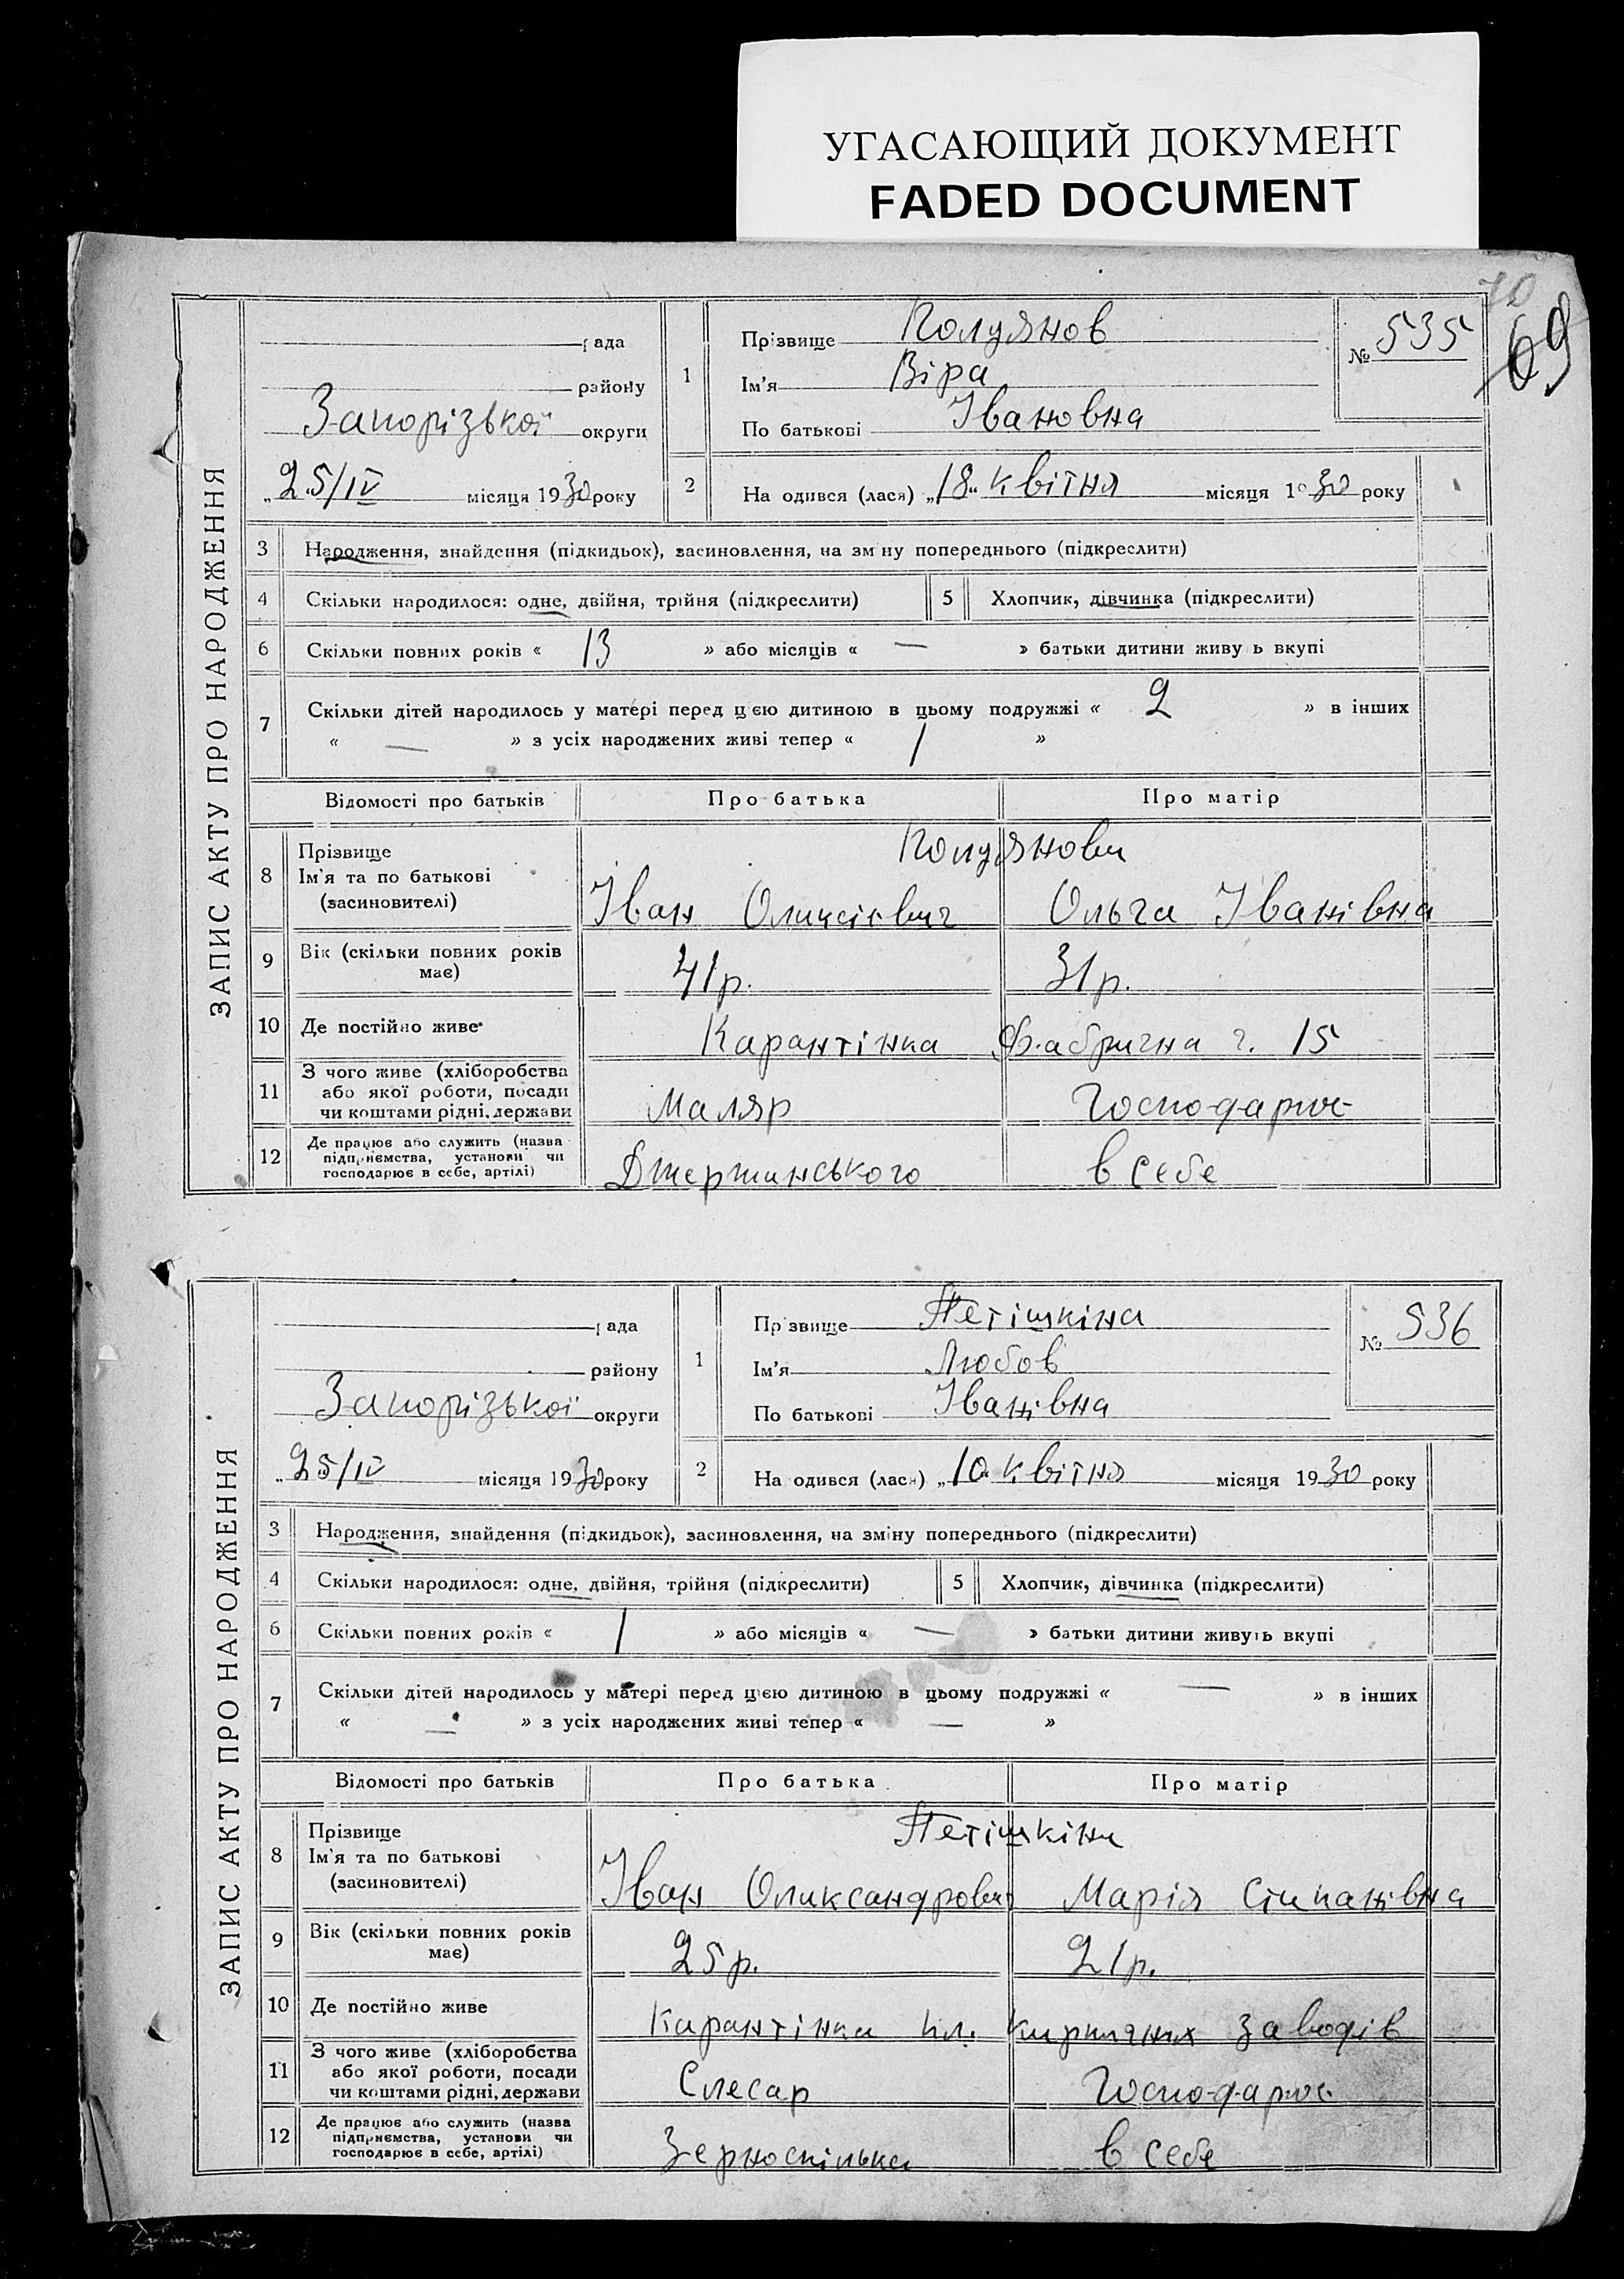 УГАСАЮЩИЙ ДОКУМЕНТ
FADED DOCUMENT
70
69
ЗАПИС АКТУ ПРО НАРОДЖЕННЯ
рада
району
Запорізької округи
„25/IV місяця 1930 року
1
Прізвище Полуянов
Ім'я Віра
По батькові Івановна
№ 535
2 На одився (лася) „18„ квітня місяця 1930 року
3 Народження, знайдення (підкидьок), засиновлення, на зміну попереднього (підкреслити)
4 Скільки народилося: одне, двійня, трійня (підкреслити) 5 Хлопчик, дівчинка (підкреслити)
6 Скільки повних років « 13 » або місяців « — » батьки дитини живу ь вкупі
7 Скільки дітей народилось у матері перед цією дитиною в цьому подружжі « 2 » в інших
« — » з усіх народжених живі тепер « 1 »
Відомості про батьків Про батька Про матір
8 Прізвище
Ім'я та по батькові
(засиновителі)
Полуянови
Іван Оликсієвич Ольга Іванівна
9 Вік (скільки повних років має) 41 р. 31 р.
10 Де постійно живе Карантінка Фабрична ч. 15
11 З чого живе (хліборобства
або якої роботи, посади
чи коштами рідні, держави
Маляр Господарює
12 Де працює або служить (назва
підприємства, установи чи
господарює в себе, артілі)
Джержинського в себе
ЗАПИС АКТУ ПРО НАРОДЖЕННЯ
рада
району
Запорізької округи
„25/IV місяця 1930 року
1
Пр звище Петішкіна
Ім'я Любов
По батькові Іванівна
№ 536
2 На одився (лася) „10„ квітня місяця 1930 року
3 Народження, знайдення (підкидьок), засиновлення, на зміну попереднього (підкреслити)
4 Скільки народилося: одне, двійня, трійня (підкреслити) 5 Хлопчик, дівчинка (підкреслити)
6 Скільки повних років « 1 » або місяців « — » батьки дитини живуть вкупі
7 Скільки дітей народилось у матері перед цією дитиною в цьому подружжі « — » в інших
« — » з усіх народжених живі тепер « — »
Відомості про батьків Про батька Про матір
8 Прізвище
Ім'я та по батькові
(засиновителі)
Петішкіни
Іван Олександрович Марія Стипанівна
9 Вік (скільки повних років має) 25 р. 21 р.
10 Де постійно живе Карантінка пл. Кирпичних заводів
11 З чого живе (хліборобства
або якої роботи, посади
чи коштами рідні, держави
Слесар Господарює
12 Де працює або служить (назва
підприємства, установи чи
господарює в себе, артілі)
Зерноспілька в себе